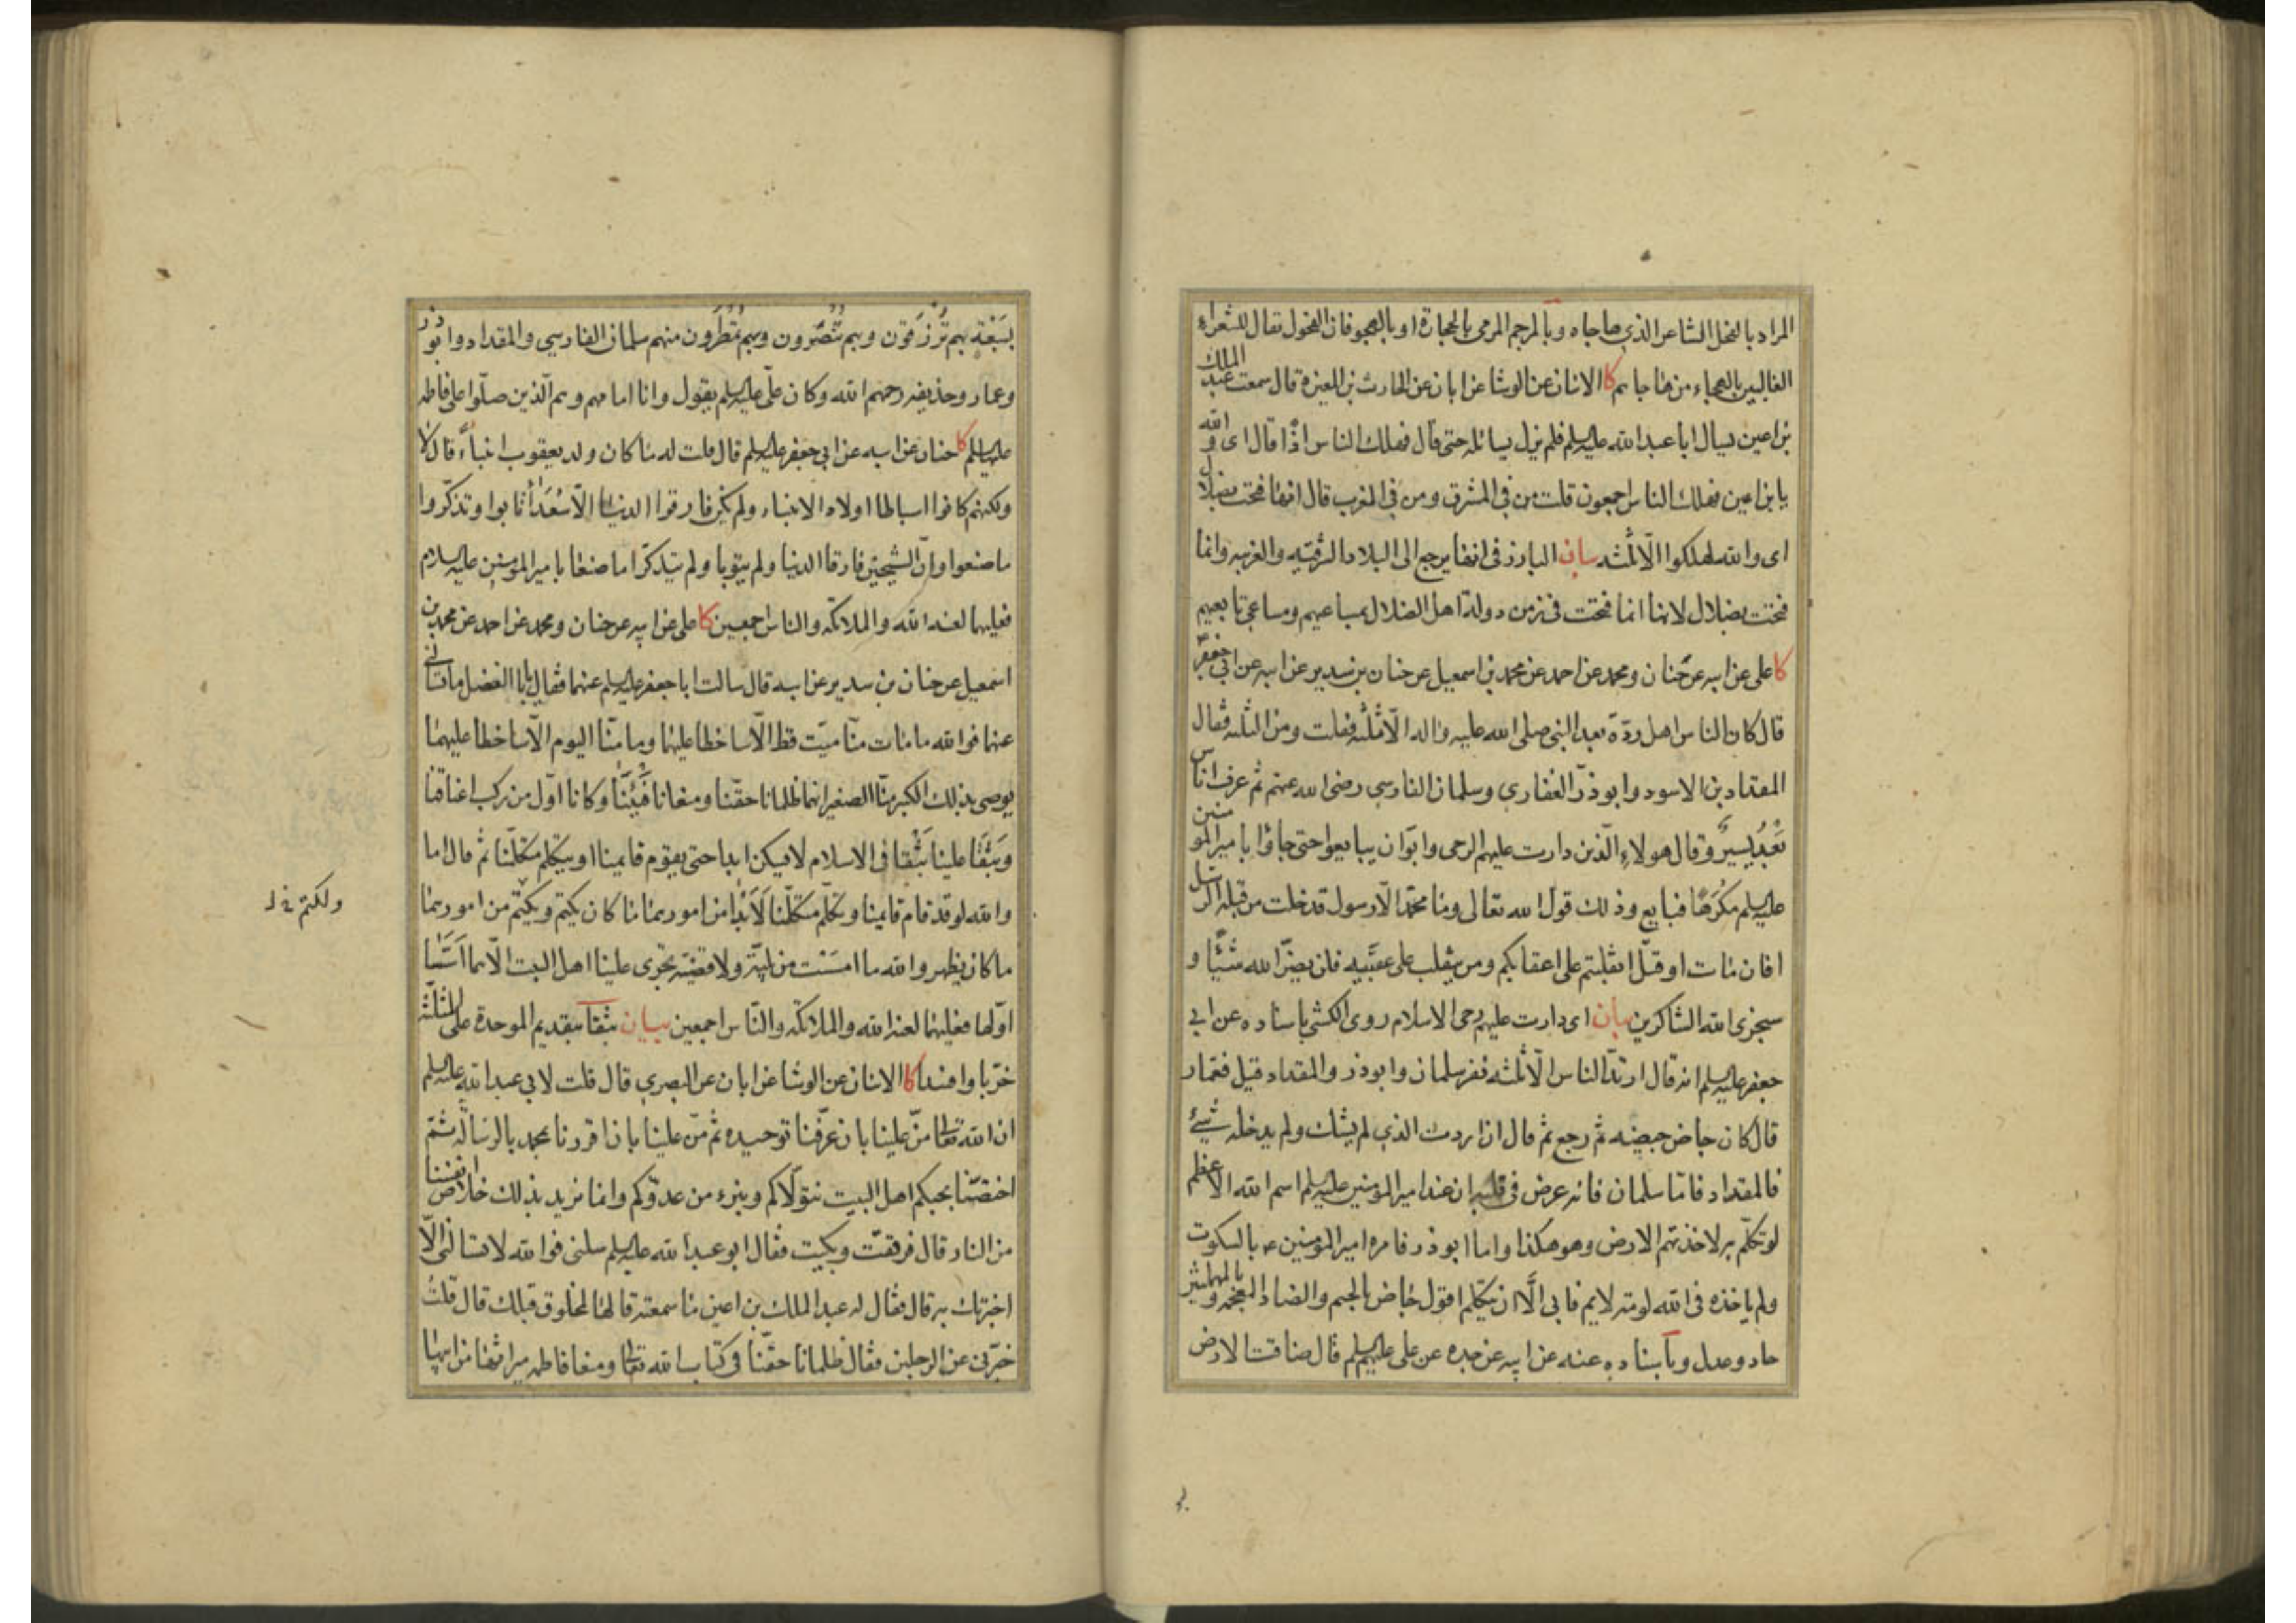 المراد بالفحل الشاعر الذي هاجاه وبالمرجم المرمى بالحجارة او بالهجو فان الفحول تقال للشعراء
الغالبين بالهجاء من هاجاهم كا الاثنان عن الوشا عن ابان عن الحارث بن المغيرة قال سمعت عبد الملك
بن اعين يسال ابا عبد الله عليه السلم فلم يزل يسائله حتى قال فهلك الناس اذًا قال اى والله
يا بن اعين فهلك الناس اجمعون قلت من في المشرق ومن في المغرب قال انها فتحت بضلال
اى والله لهلكوا الّا ثلثه بيان البارز فى انها يرجع الى البلاد الشرقيه والغربيه وانما
فتحت بضلال لانها انما فتحت فى زمن دولة اهل الضلال بمساعيهم ومساعى تابعيهم
كا على عن ابيه عن حنان ومحمد عن احمد عن محمد بن اسمعيل عن حنان بن سدير عن ابيه عن ابي جعفر
قال كان الناس اهل ردّة بعد النبى صلى الله عليه واله الّا ثلثه فقلت ومن الثلثه فقال
المقداد بن الاسود وابو ذرّ الغفاري وسلمان الفارسي رضى الله عنهم ثم عرف اناس
بَعْدَ يسيرٍ وقال هولاءِ الّذين دارت عليهم الرحى وابَوْا ان يبايعوا حتى جاؤا بامير المومنين
عليه السلم مكرَهًا فبايع وذلك قول الله تعالى وما محمّد الّا رسول قد خلت من قبله الرسل
افان مات او قتل انقلبتم على اعقابكم ومن ينقلب على عقبيه فلن يضرّ الله شيئًا و
سيجزى الله الشاكرين بيان اى دارت عليهم رحى الاسلام روى الكشى باسناده عن ابي
جعفر عليه السلم انه قال ارتدّ الناس الّا ثلثه نفر سلمان وابو ذر والمقداد قيل فعمّار
قال كان جاض جيضه ثم رجع ثم قال ان اردت الذي لم يشك ولم يدخله شيئ
فالمقداد فامّا سلمان فانه عرض فى قلبه ان عند امير المؤمنين عليه السلم اسم الله الاعظم
لو تكلّم به لاخذتهم الارض وهو هكذا واما ابو ذر فامره امير المؤمنين ع بالسكوت
ولم ياخذه فى الله لومة لايم فابى الّا ان يتكلم اقول جاض بالجيم والضاد المعجمه و
حاد وعدل وباسناده عنه عن ابيه عن جده عن على عليهم السلم قال ضاقت الارض
بسَبْعَةٍ بهم تُرْزَقون وبهم تُنصَرون وبهم تُمْطَرون منهم سلمان الفارسي والمقداد وابو ذر
وعمار وحذيفه رحمهم الله وكان علّى عليه السلم يقول وانا امامهم وهم الّذين صلّوا على فاطمه
عليها السلم كا حنان عن ابيه عن ابي جعفر عليه السلم قال قلت له ما كان ولد يعقوب انبياءً قال لا
ولكنهم كانوا اسباطا اولاد الانبياء ولم يكن فارقوا الدنيا الّا سُعَدَاءَ تابوا وتذكّروا
ما صنعوا وانّ الشيخين فارقا الدنيا ولم يتوبا ولم يتذكّرا ما صنعا بامير المومنين عليه السلام
فعليهما لعنه الله والملائكه والناس اجمعين كا على عن ابيه عن حنان ومحمد عن احمد عن محمد بن
اسمعيل عن حنان بن سدير عن ابيه قال سالت ابا جعفر عليه السلم عنهما فقال يا ابا الفضل ما تسالني
عنهما فوالله ما مات منّا ميّت قط الّا ساخطا عليهما وما منّا اليوم الّا ساخطا عليهما
يوصى بذلك الكبير منّا الصغير انهما ظلمانا حقّنا ومنعانا فَيْئَنَا وكانا اوّل من ركب اعناقنا
وبَثَقَا علينا بَثْقا فى الاسلام لا يسكن ابدا حتى يقوم قايمنا او يتكلم متكلّمنا ثم قال اما
والله لو قد قام قايمنا وتكلّم متكلّمنا لَاَبْدا من امورهما ما كان يكتم ويكتم من امورهما
ما كان يظهر والله ما امسّت من بليّة ولا قضيّه تجرى علينا اهل البيت الّا هما اَسَّسَا
اوّلها فعليهما لعنه الله والملائكه والنّاس اجمعين بيان بثقا بتقديم الموحدة على المثلّثه
خرّبا وافسدا كا الاثنان عن الوشا عن ابان عن البصري قال قلت لابي عبد الله عليه السلم
ان الله تعالى منّ علينا بان عرّفنا توحيده ثم منّ علينا بان اقررنا بمحمد بالرسالة ثمّ
اختصّنا بحبكم اهل البيت نتولّاكم ونبرء من عدوّكم وانما نريد بذلك خلاص انفسنا
من النار قال فرققت وبكيت فقال ابو عبد الله عليه السلم سلنى فوالله لا تسالنى الّا
اخبرتك به قال فقال له عبد الملك بن اعين ما سمعته قالها لمخلوق قبلك قال قلت
خبّرنى عن الرجلين فقال ظلمانا حقّنا فى كتاب الله تعالى ومنعا فاطمه ميراثها من ابيها
ولكتم خ ل